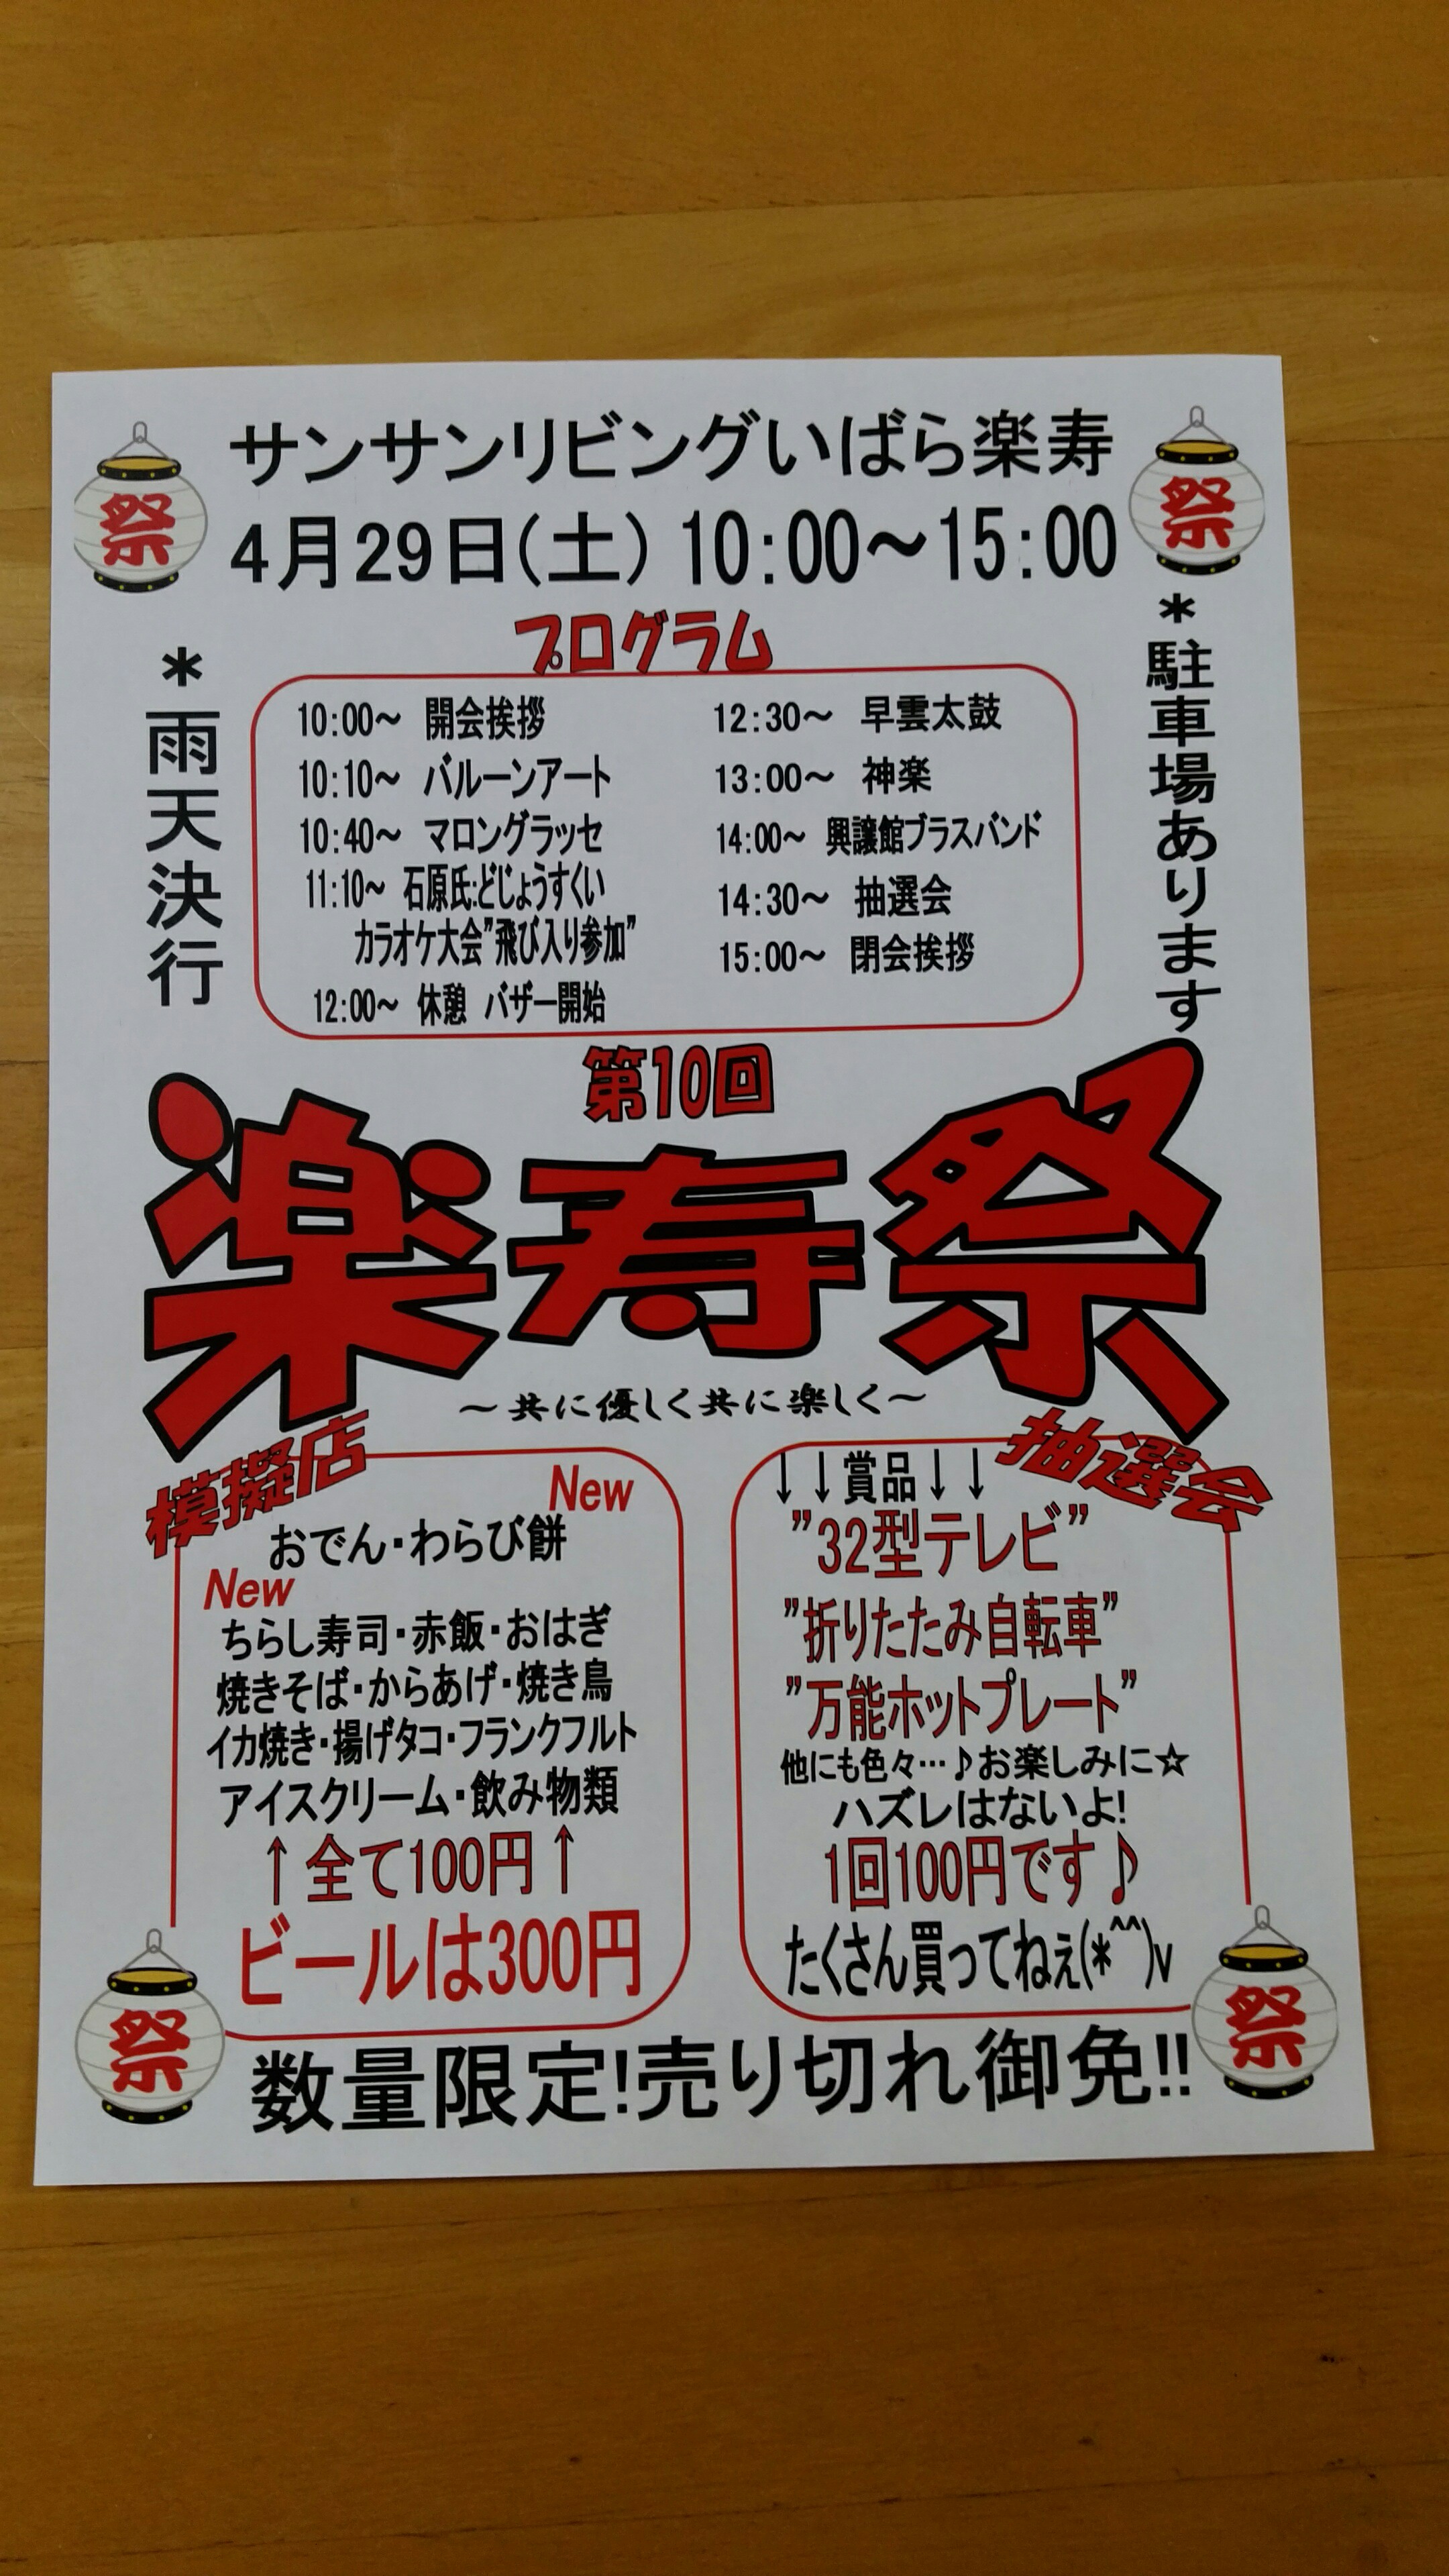 サンサンリビングいばら楽寿
4月29日(土) 10:00～15:00
祭
祭
*雨天決行
*駐車場あります
プログラム
10:00～ 開会挨拶
10:10～ バルーンアート
10:40～ マロングラッセ
11:10～ 石原氏:どじょうすくい
カラオケ大会”飛び入り参加”
12:00～ 休憩 バザー開始
12:30～ 早雲太鼓
13:00～ 神楽
14:00～ 興譲館ブラスバンド
14:30～ 抽選会
15:00～ 閉会挨拶
第10回
楽寿祭
～共に優しく共に楽しく～
模擬店
New
おでん・わらび餅
New
ちらし寿司・赤飯・おはぎ
焼きそば・からあげ・焼き鳥
イカ焼き・揚げタコ・フランクフルト
アイスクリーム・飲み物類
↑全て100円↑
ビールは300円
抽選会
↓↓賞品↓↓
”32型テレビ”
”折りたたみ自転車”
”万能ホットプレート”
他にも色々…♪お楽しみに☆
ハズレはないよ!
1回100円です♪
たくさん買ってねぇ(*^^)v
祭
祭
数量限定!売り切れ御免!!